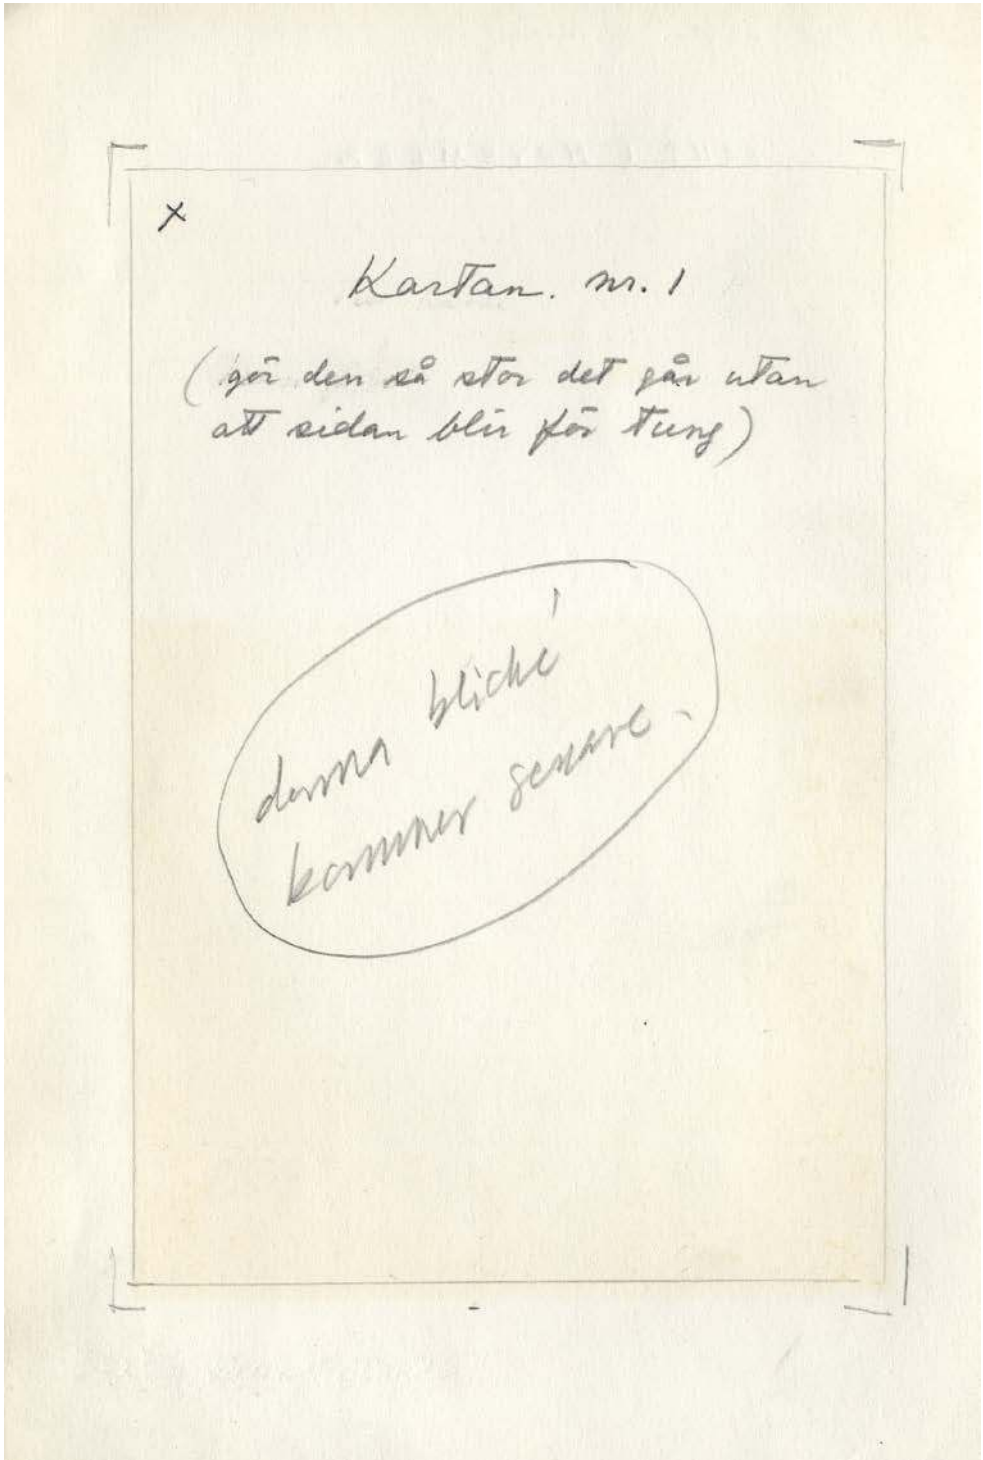 x
Kartan. nr. 1
(gör den så stor det går utan
att sidan blir för tung)
denna kliché
kommer senare.